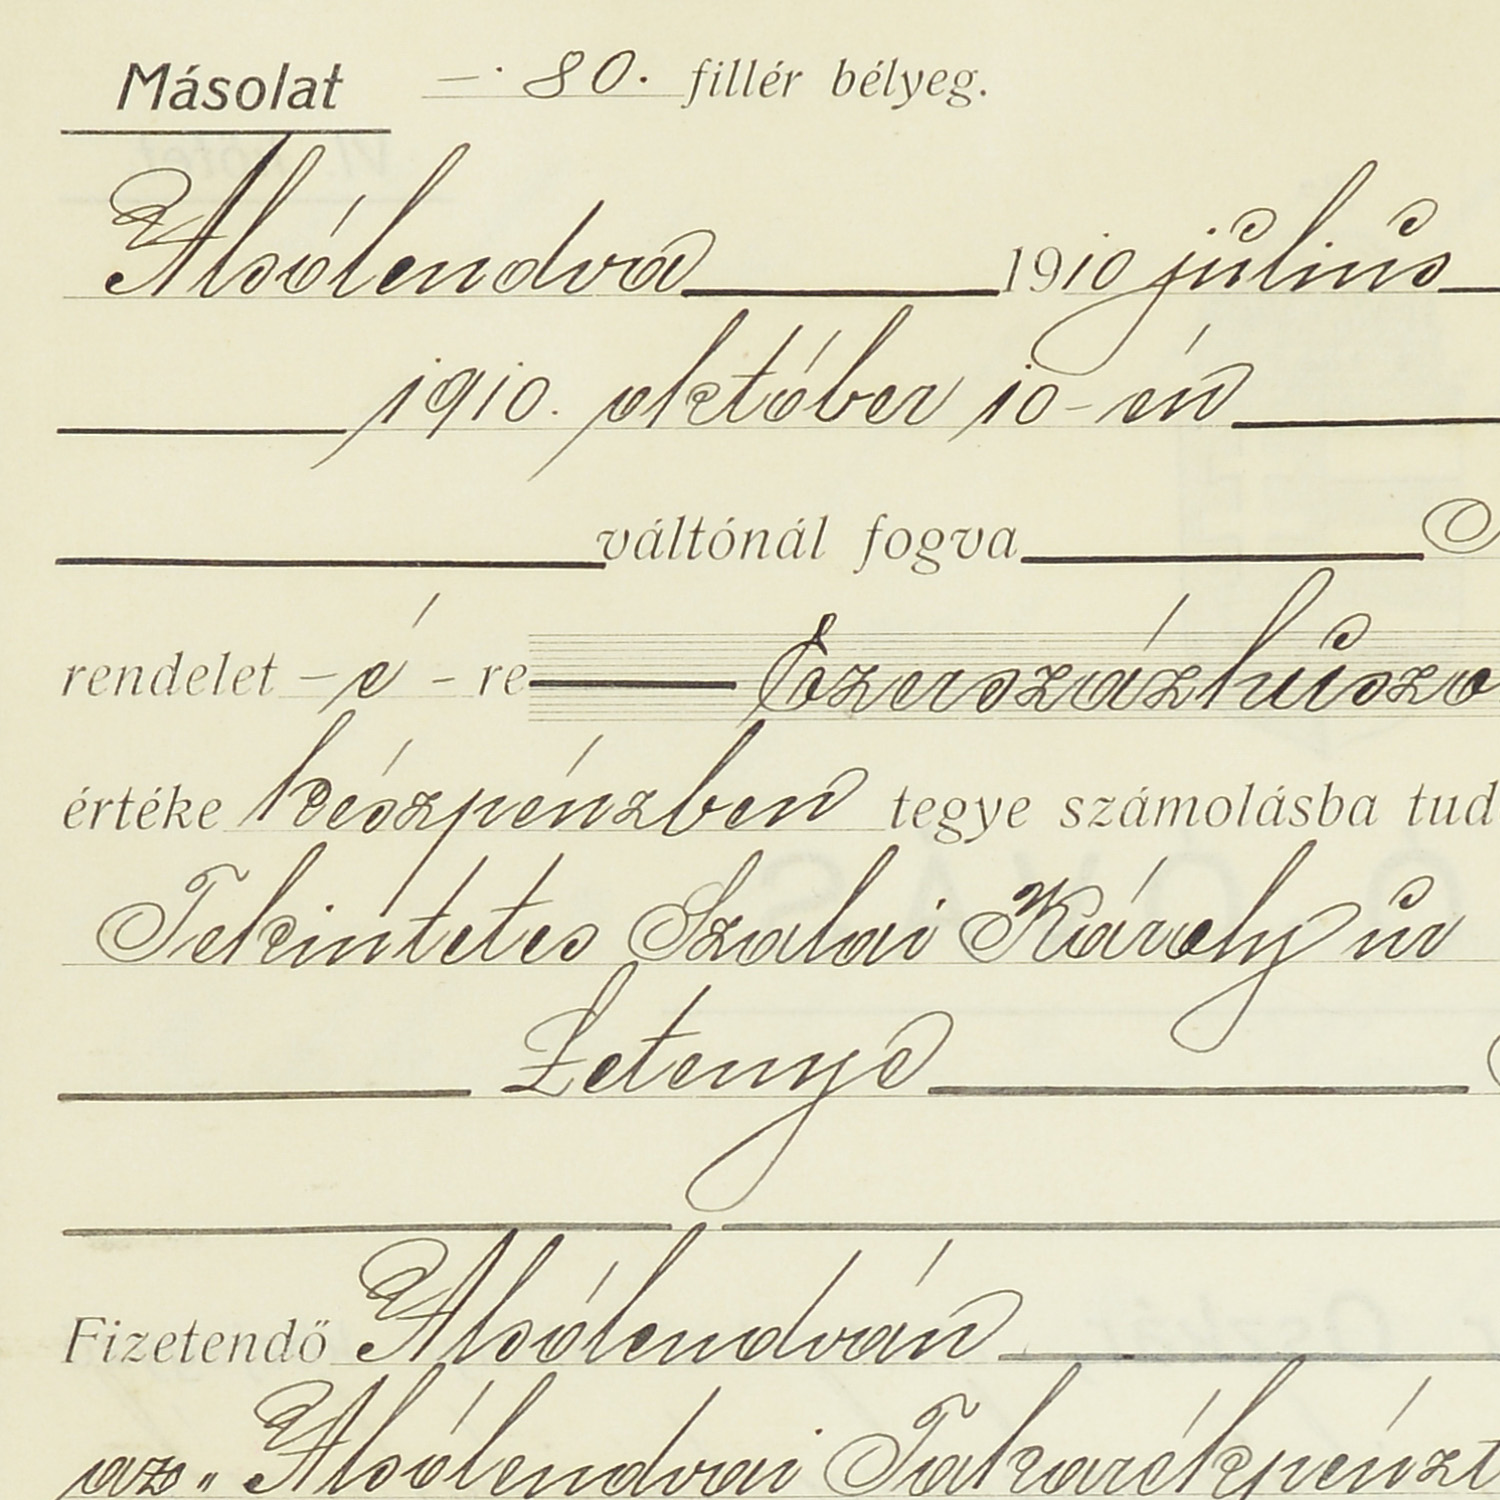 Másolat —· 80. fillér bélyeg.
Alsólendva 1910 július
1910. október 10-én
váltónál fogva
rendelet – é – re Ezerszázhúszo
értéke készpénzben tegye számolásba tud
Tekintetes Szalai Károly úr
Letenye
Fizetendő Alsólendván
az „Alsólendvai Takarékpénzt